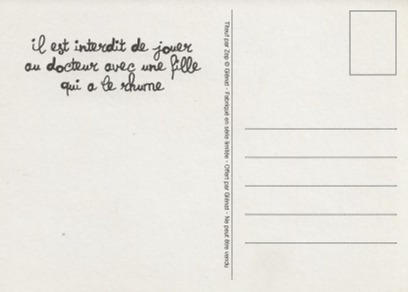 il est interdit de jouer
au docteur avec une fille
qui a le rhume
Titeuf par Zep © Glénat - Fabriqué en série limitée - Offert par Glénat - Ne peut être vendu